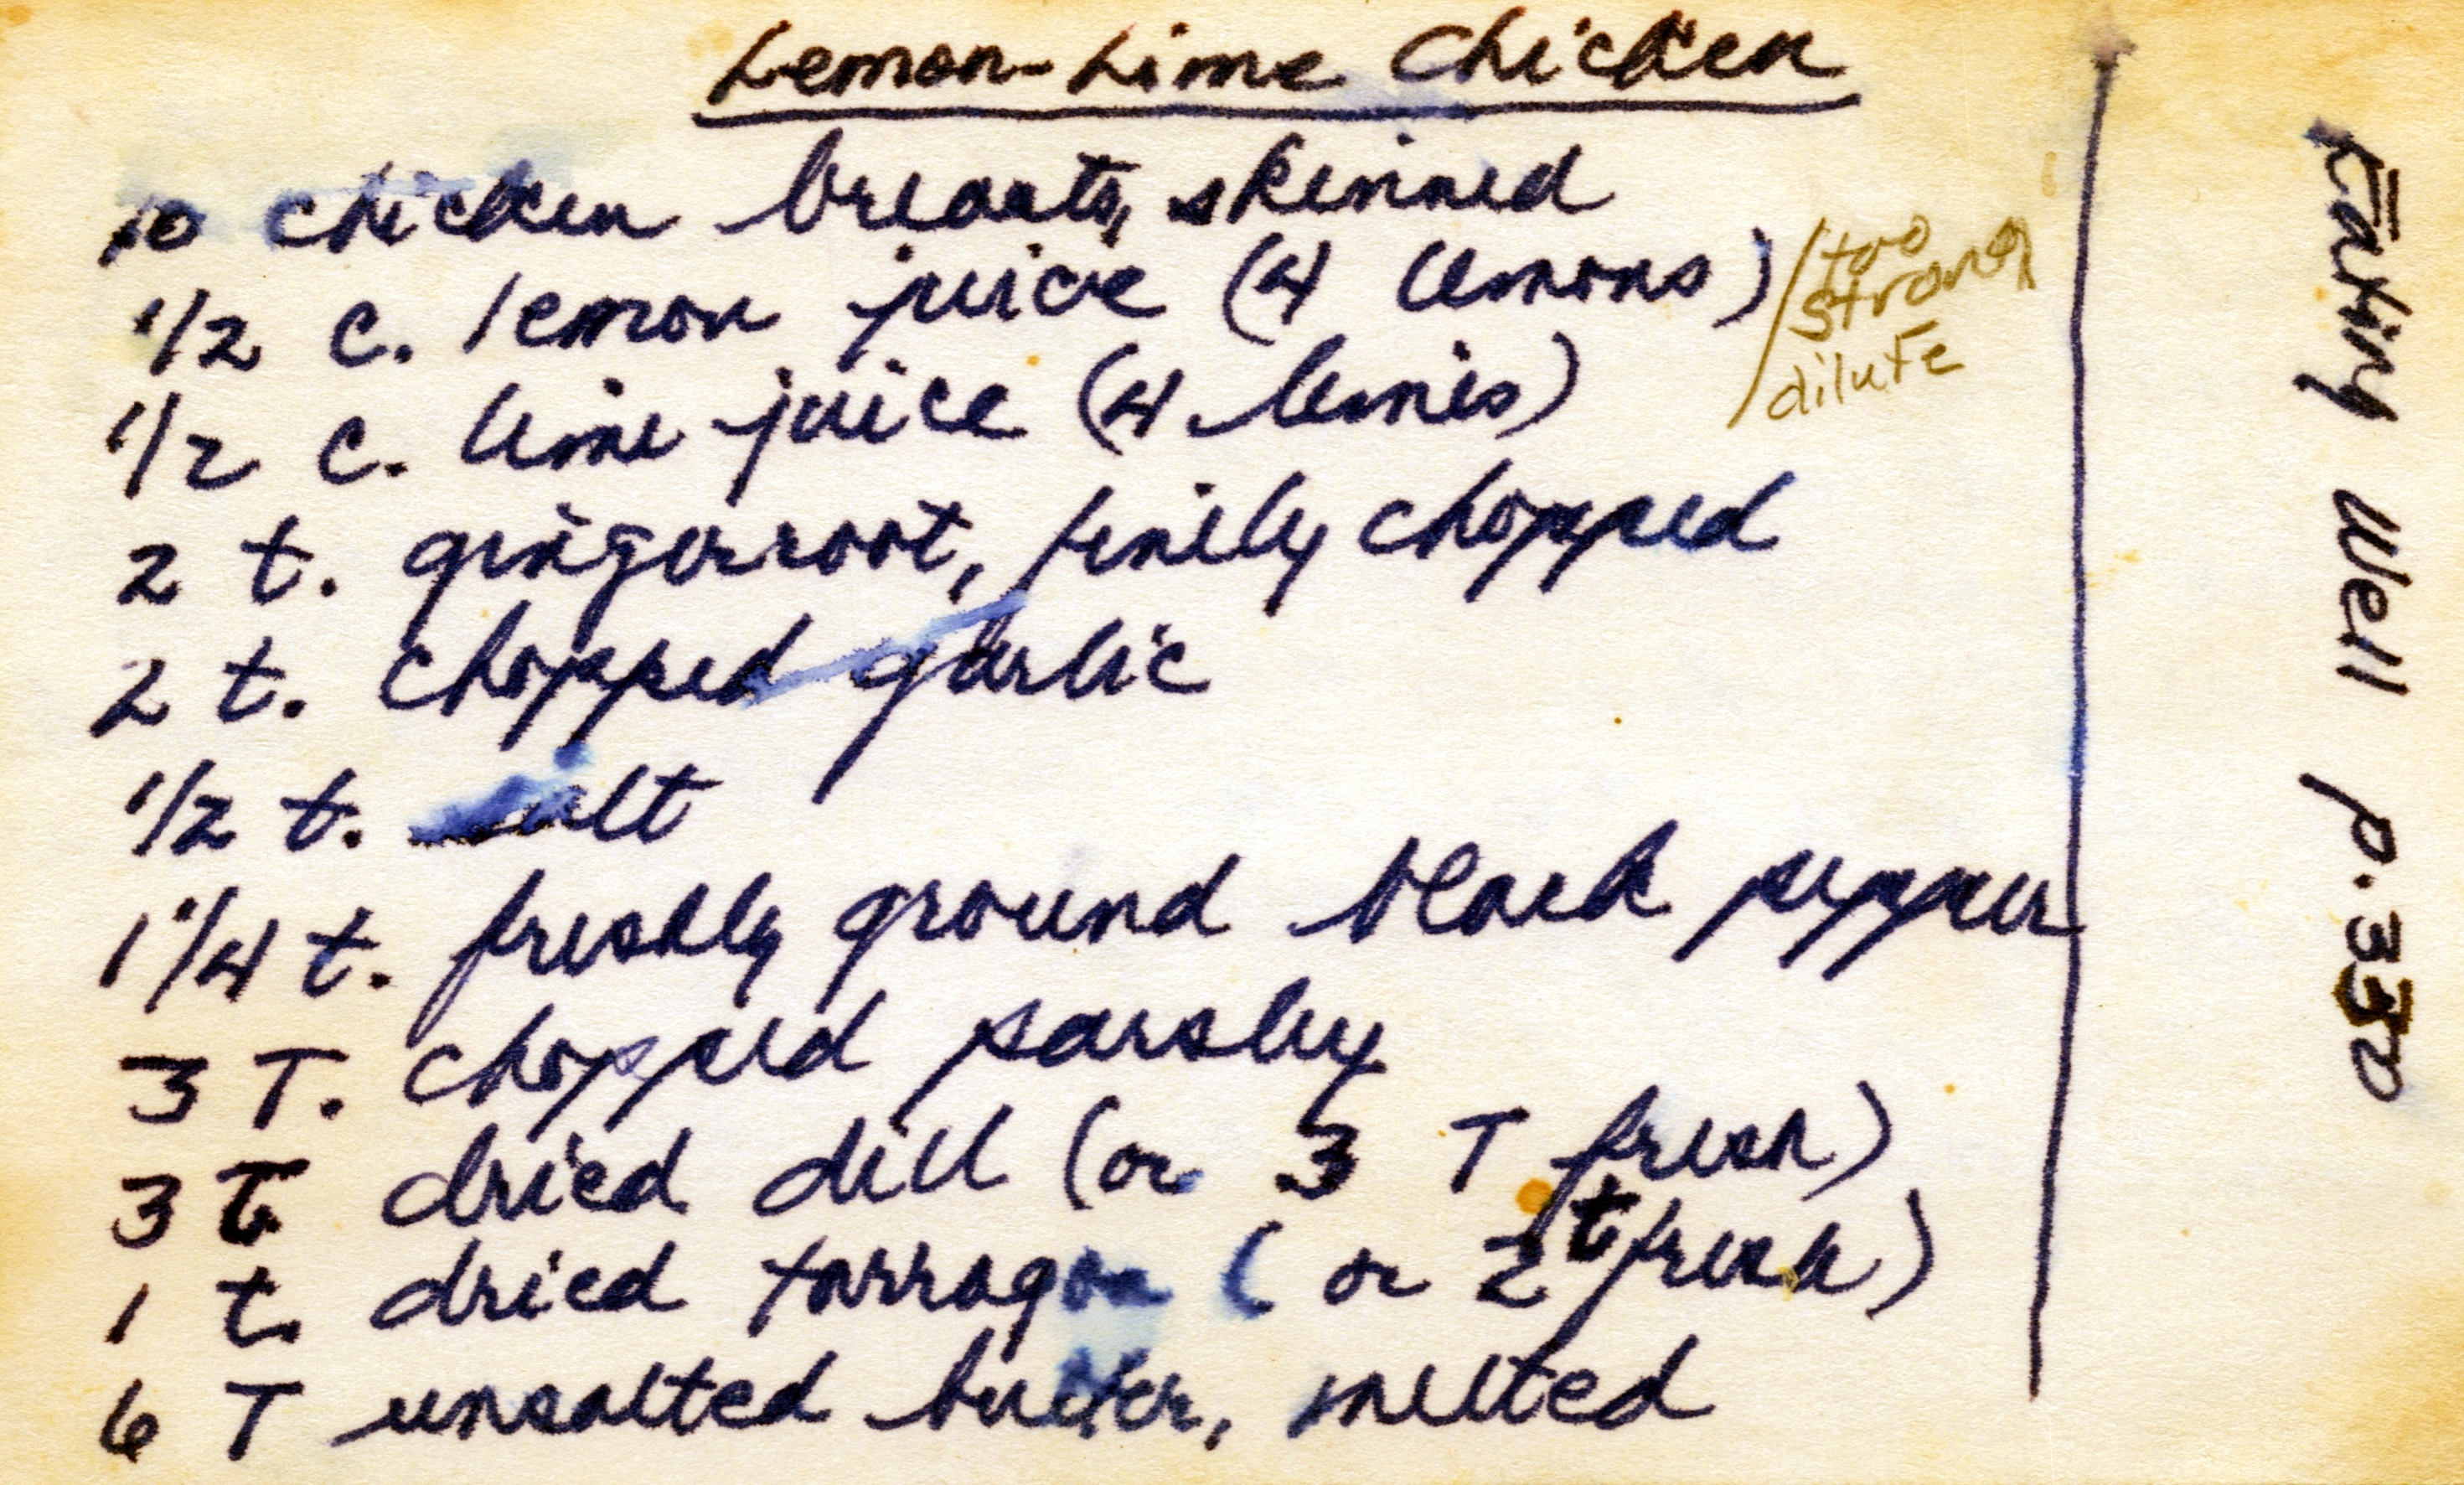 Lemon-Lime Chicken
10 chicken breasts, skinned
1/2 c. lemon juice (4 lemons)
too
strong
dilute
1/2 c. lime juice (4 limes)
2 t. gingerroot, finely chopped
2 t. chopped garlic
1/2 t. salt
1 1/4 t. freshly ground black pepper
3 T. chopped parsley
3 t. dried dill (or 3 T fresh)
1 t. dried tarragon (or 2 t fresh)
6 T unsalted butter, melted
Eating Well p. 350